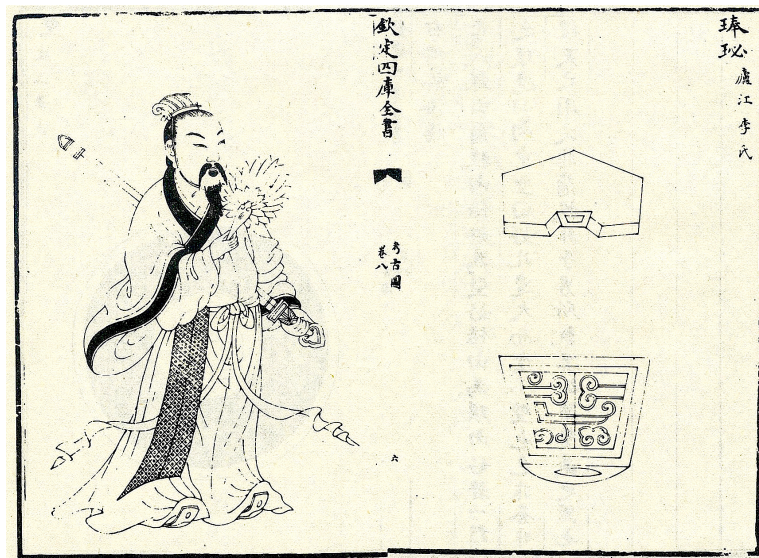 琫珌 廬江李氏
欽定四庫全書
考古圖
卷八
六